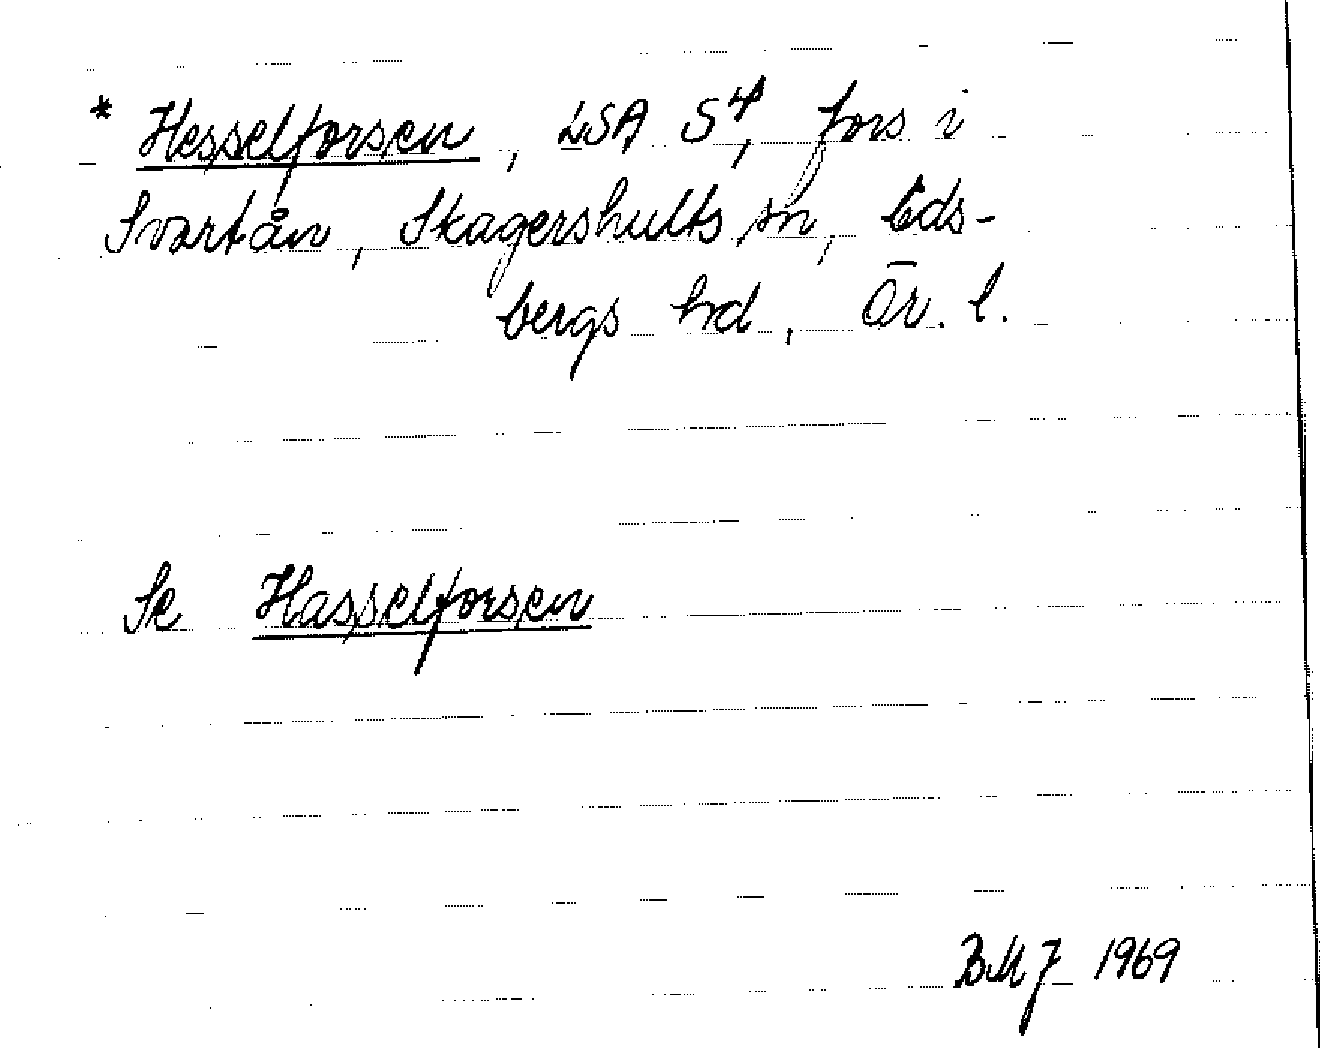 * Hesselforsen, LSA S4, fors i
Svartån, Skagershults sn, Eds-
bergs hd, Ör. l.
Se Hasselforsen
BMJ 1969